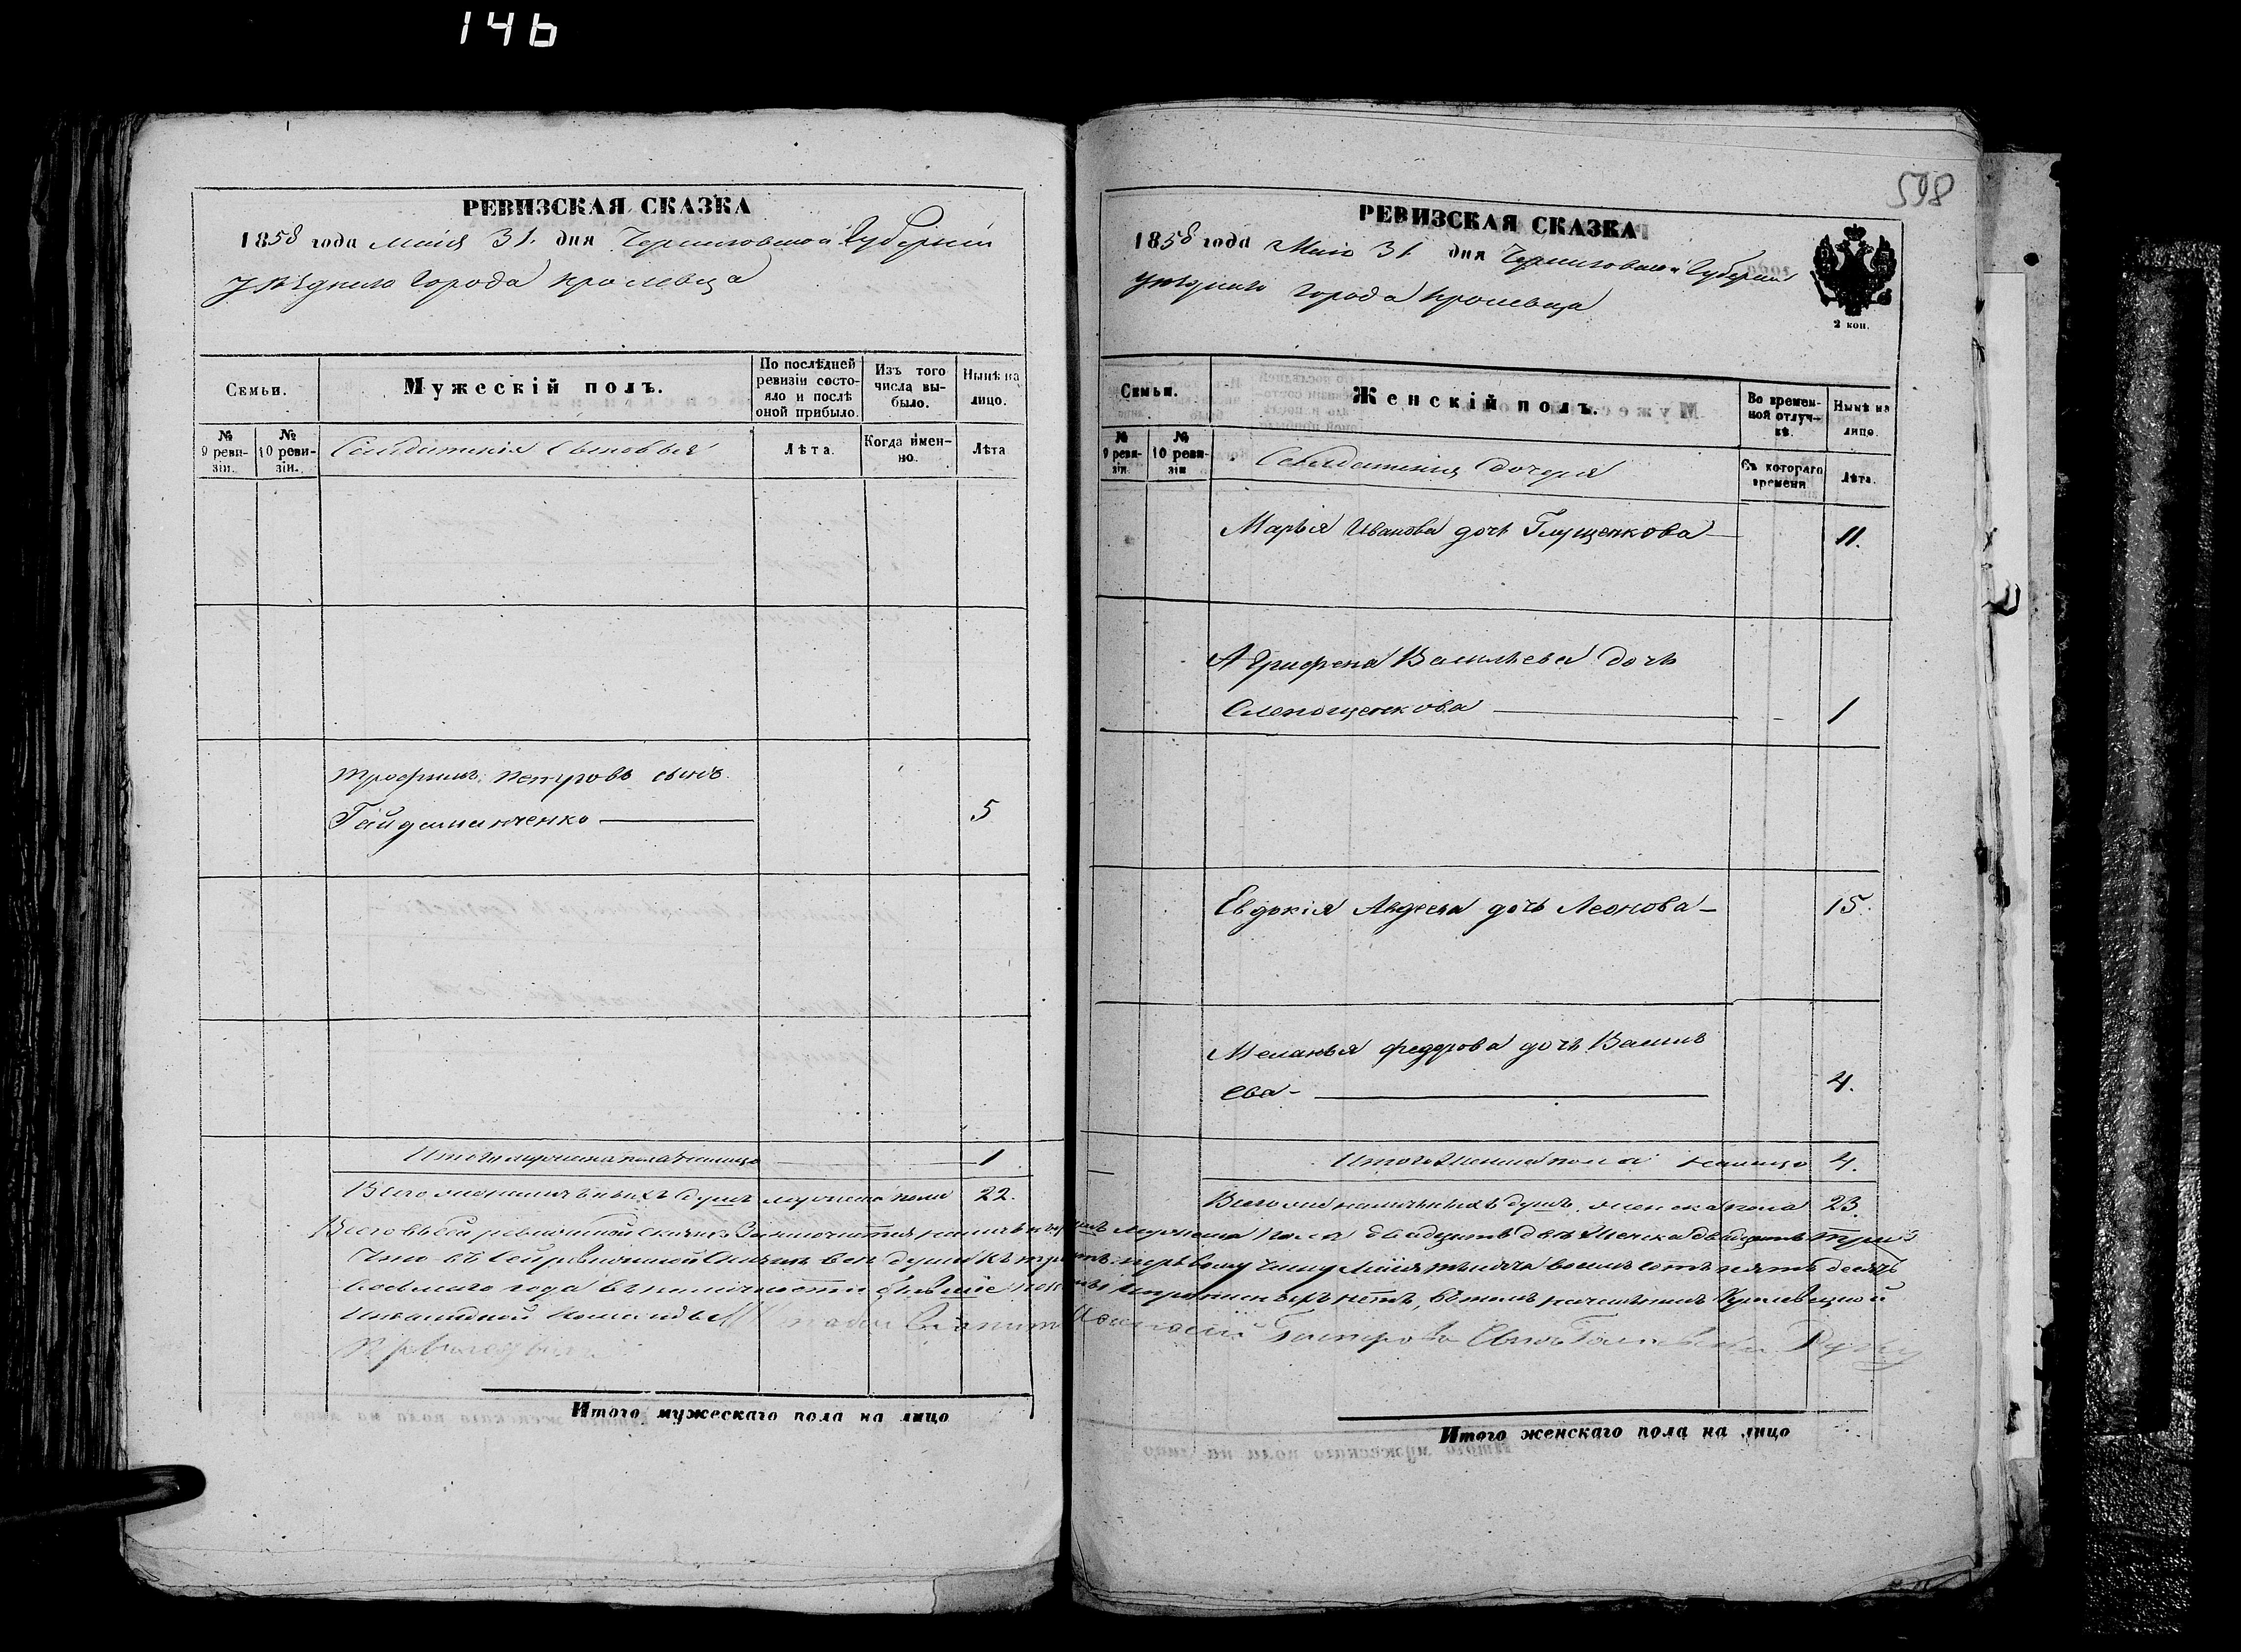 146
РЕВИЗСКАЯ СКАЗКА
1858 года Мая 31. дня Черниговской Губерніи
уѣзднаго Города Кролевца
Семьи.
Мужескій полъ.
По послѣдней ревизіи состояло и послѣ оной прибыло.
Изъ того числа выбыло.
Нынѣ на лицо.
№ 9 ревизіи.
№ 10 ревизіи.
Солдатскія Сыновья
Лѣта.
Когда именно.
Лѣта
Трофимъ Петровъ сынъ
Гайдаманченко 5
Итого мужеска пола налицо 1
Всего мѣ наличныхъ душъ мужеска пола 22.
Итого мужескаго пола на лицо
598
РЕВИЗСКАЯ СКАЗКА
1858 года Мая 31 дня Черниговской Губерніи
уѣзднаго города Кролевца
2 коп.
Семьи.
Женскій полъ.
Во временной отлучкѣ.
Нынѣ на лицо.
№ 9 ревизіи
№ 10 ревизіи
Солдатскія дочеря
Съ котораго времени
Лѣта.
Марья Иванова дочь Глущенкова 11.
Агрифена Васильева дочь
Слепощенкова 1
Евдокія Авдеева дочь Леонова 15.
Меланья Федорова дочь Василь
ева 4.
Итого женска пола налицо 4.
Всего наличныхъ душъ женска пола 23.
Всего въ сей ревизской сказкѣ мужеска пола двадцать две женска двадцать три
Что въ сей ревизской все души къ первому числу Мая тысяча восемь сотъ пять десятъ
восьмаго года въ наличности бывшіе нетъ, въ томъ
Инвалидной Команды
Итого женскаго пола на лицо